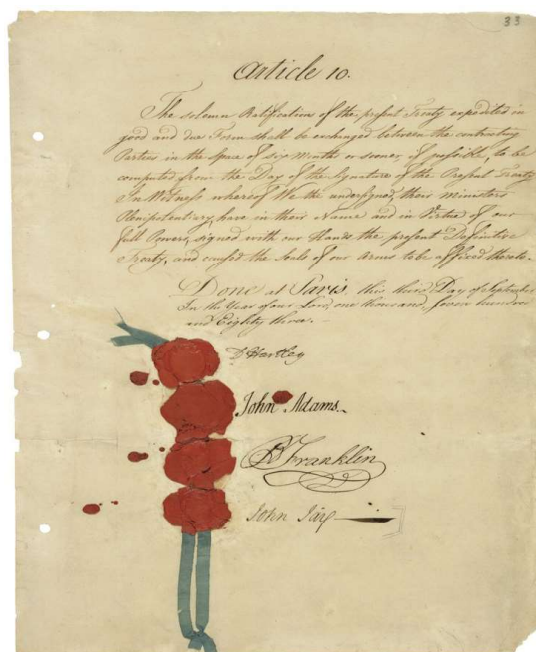 33
Article 10.
The solemn Ratifications of the present Treaty expedited in
good and due Form shall be exchanged between the contracting
Parties in the Space of six Months or sooner, if possible, to be
computed from the Day of the Signature of the Present Treaty
In Witness whereof We the undersigned, their Ministers
Plenipotentiary, have in their Name and in Virtue of our
full Powers, signed with our Hands the present Definitive
Treaty, and caused the Seals of our Arms to be affixed thereto.
Done at Paris, this third Day of September
In the Year of our Lord, one thousand, seven hundred
and Eighty three.
D Hartley
John Adams.
B Franklin
John Jay